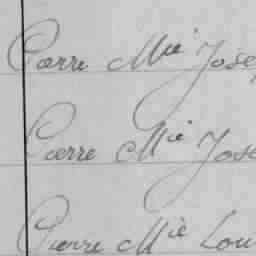 Pierre Mie Jose
Pierre Mie Jose
Pierre Mie Lou